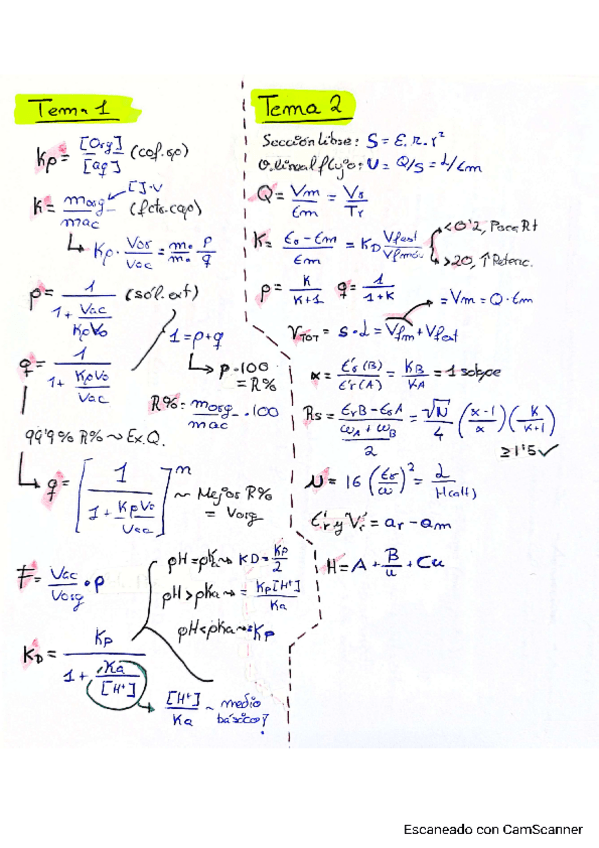 Tema 1
Kp = [Org]/[aq] (cof. qo)
K = morg/mac (fcto. cap)
[]·V
Kp · Vor/Vac = mo/ma · p/q
p = 1/(1 + Vac/KpVo) (sól. ext)
1 = p + q
p · 100 = R%
q = 1/(1 + KpVo/Vac)
R% = morg/mac · 100
99'9% R% ~ Ex.Q.
q = [1/(1 + KpVo/Vac)]^n ~ Mejor R% = Vorg
F = Vac/Vorg · p
pH = pKa → KD = Kp/2
pH > pKa → = Kp[H+]/Ka
pH < pKa → = Kp
KD = Kp/(1 + Ka/[H+])
[H+]/Ka ~ medio básico?
Tema 2
Sección libre: S = ε.π.r²
V. lineal flujo: U = Q/S = L/tm
Q = Vm/tm = Vr/Tr
K = (tr - tm)/tm = KD Vfest/Vfmóv
<0'2, Poca Rt
>20, ↑ Retenc.
p = K/(K+1) q = 1/(1+K)
= Vm = Q · tm
VTOT = S · L = Vfm + Vfest
α = t'r(B)/t'r(A) = KB/KA = 1 solape
Rs = (trB - trA)/((ωA + ωB)/2) = √N/4 (α-1/α) (K/K+1)
≥1'5 ✓
N = 16 (tr/ω)² = L/H(alt)
t'r y V'r = ar - am
H = A + B/u + Cu
Escaneado con CamScanner